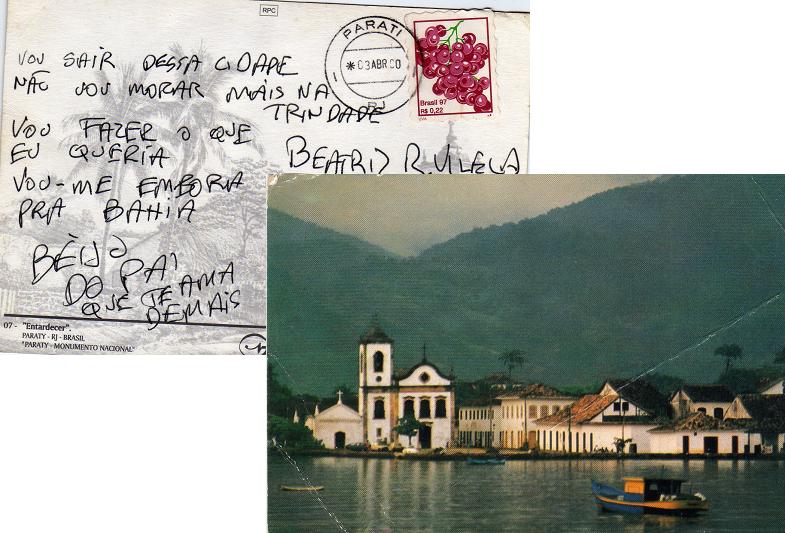 RPC
PARATI
*03ABR00
RJ
Brasil 97
R$ 0,22
VOU SAIR DESSA CIDADE
NÃO VOU MORAR MAIS NA
TRINDADE
VOU FAZER O QUE
EU QUERIA
VOU-ME EMBORA
PRA BAHIA
BEIJO
DO PAI
QUE TE AMA
DEMAIS
BEATRIZ R.
07 - "Entardecer".
PARATY - RJ - BRASIL
"PARATY - MONUMENTO NACIONAL"